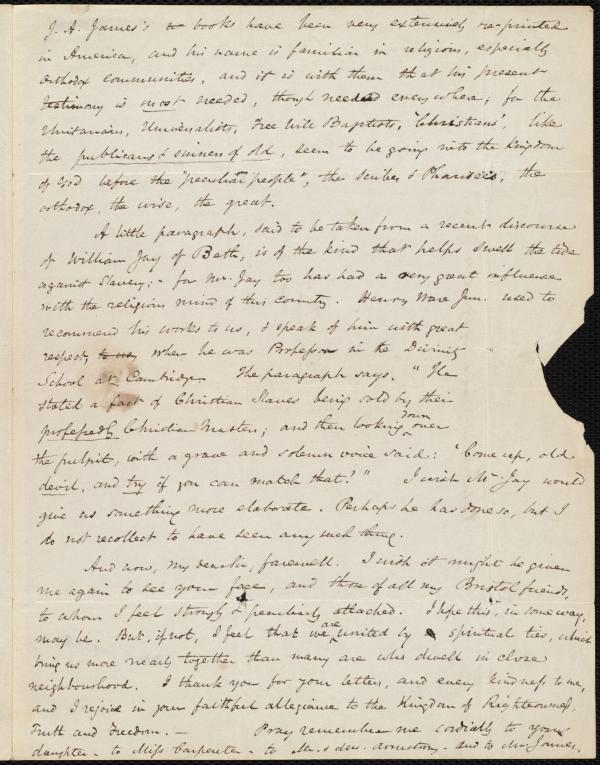 J. A. James's books have been very extensively re-printed
in America, and his name is familiar in religious, especially
orthodox communities, and it is with them that his present
testimony is most needed, though needed everywhere; for the
Unitarians, Universalists, Free Will Baptists, "Christians", like
the publicans & sinners of old, seem to be going into the kingdom
of God before the "peculiar people", the scribes & Pharisees, the
orthodox, the wise, the great.
A little paragraph, said to be taken from a recent discourse
of William Jay of Bath, is of the kind that helps swell the tide
against Slavery; - for Mr. Jay too has had a very great influence
with the religious mind of this Country. Henry Ware Jun. used to
recommend his works to us, & speak of him with great
respect, to us, when he was Professor in the Divinity
School at Cambridge. The paragraph says, "He
stated a fact of Christian Slaves being sold by their
professedly Christian Masters; and then looking down over
the pulpit, with a grave and solemn voice said: 'Come up, old
devil, and try if you can match that!'" I wish Mr Jay would
give us something more elaborate. Perhaps he has done so, but I
do not recollect to have seen any such thing.
And now, my dear Sir, farewell. I wish it might be given
me again to see your face, and those of all my Bristol friends,
to whom I feel strongly & peculiarly attached. I hope this, in some way,
may be. But, if not, I feel that we are united by spiritual ties, which
bring us more nearly together than many are who dwell in close
neighbourhood. I thank you for your letter, and every kindness to me,
and I rejoice in your faithful allegiance to the Kingdom of Righteousness,
Truth and Freedom. — Pray remember me cordially to your
daughter - to Miss Carpenter - to Mr. & Mrs. Armstrong - and to Mr James,